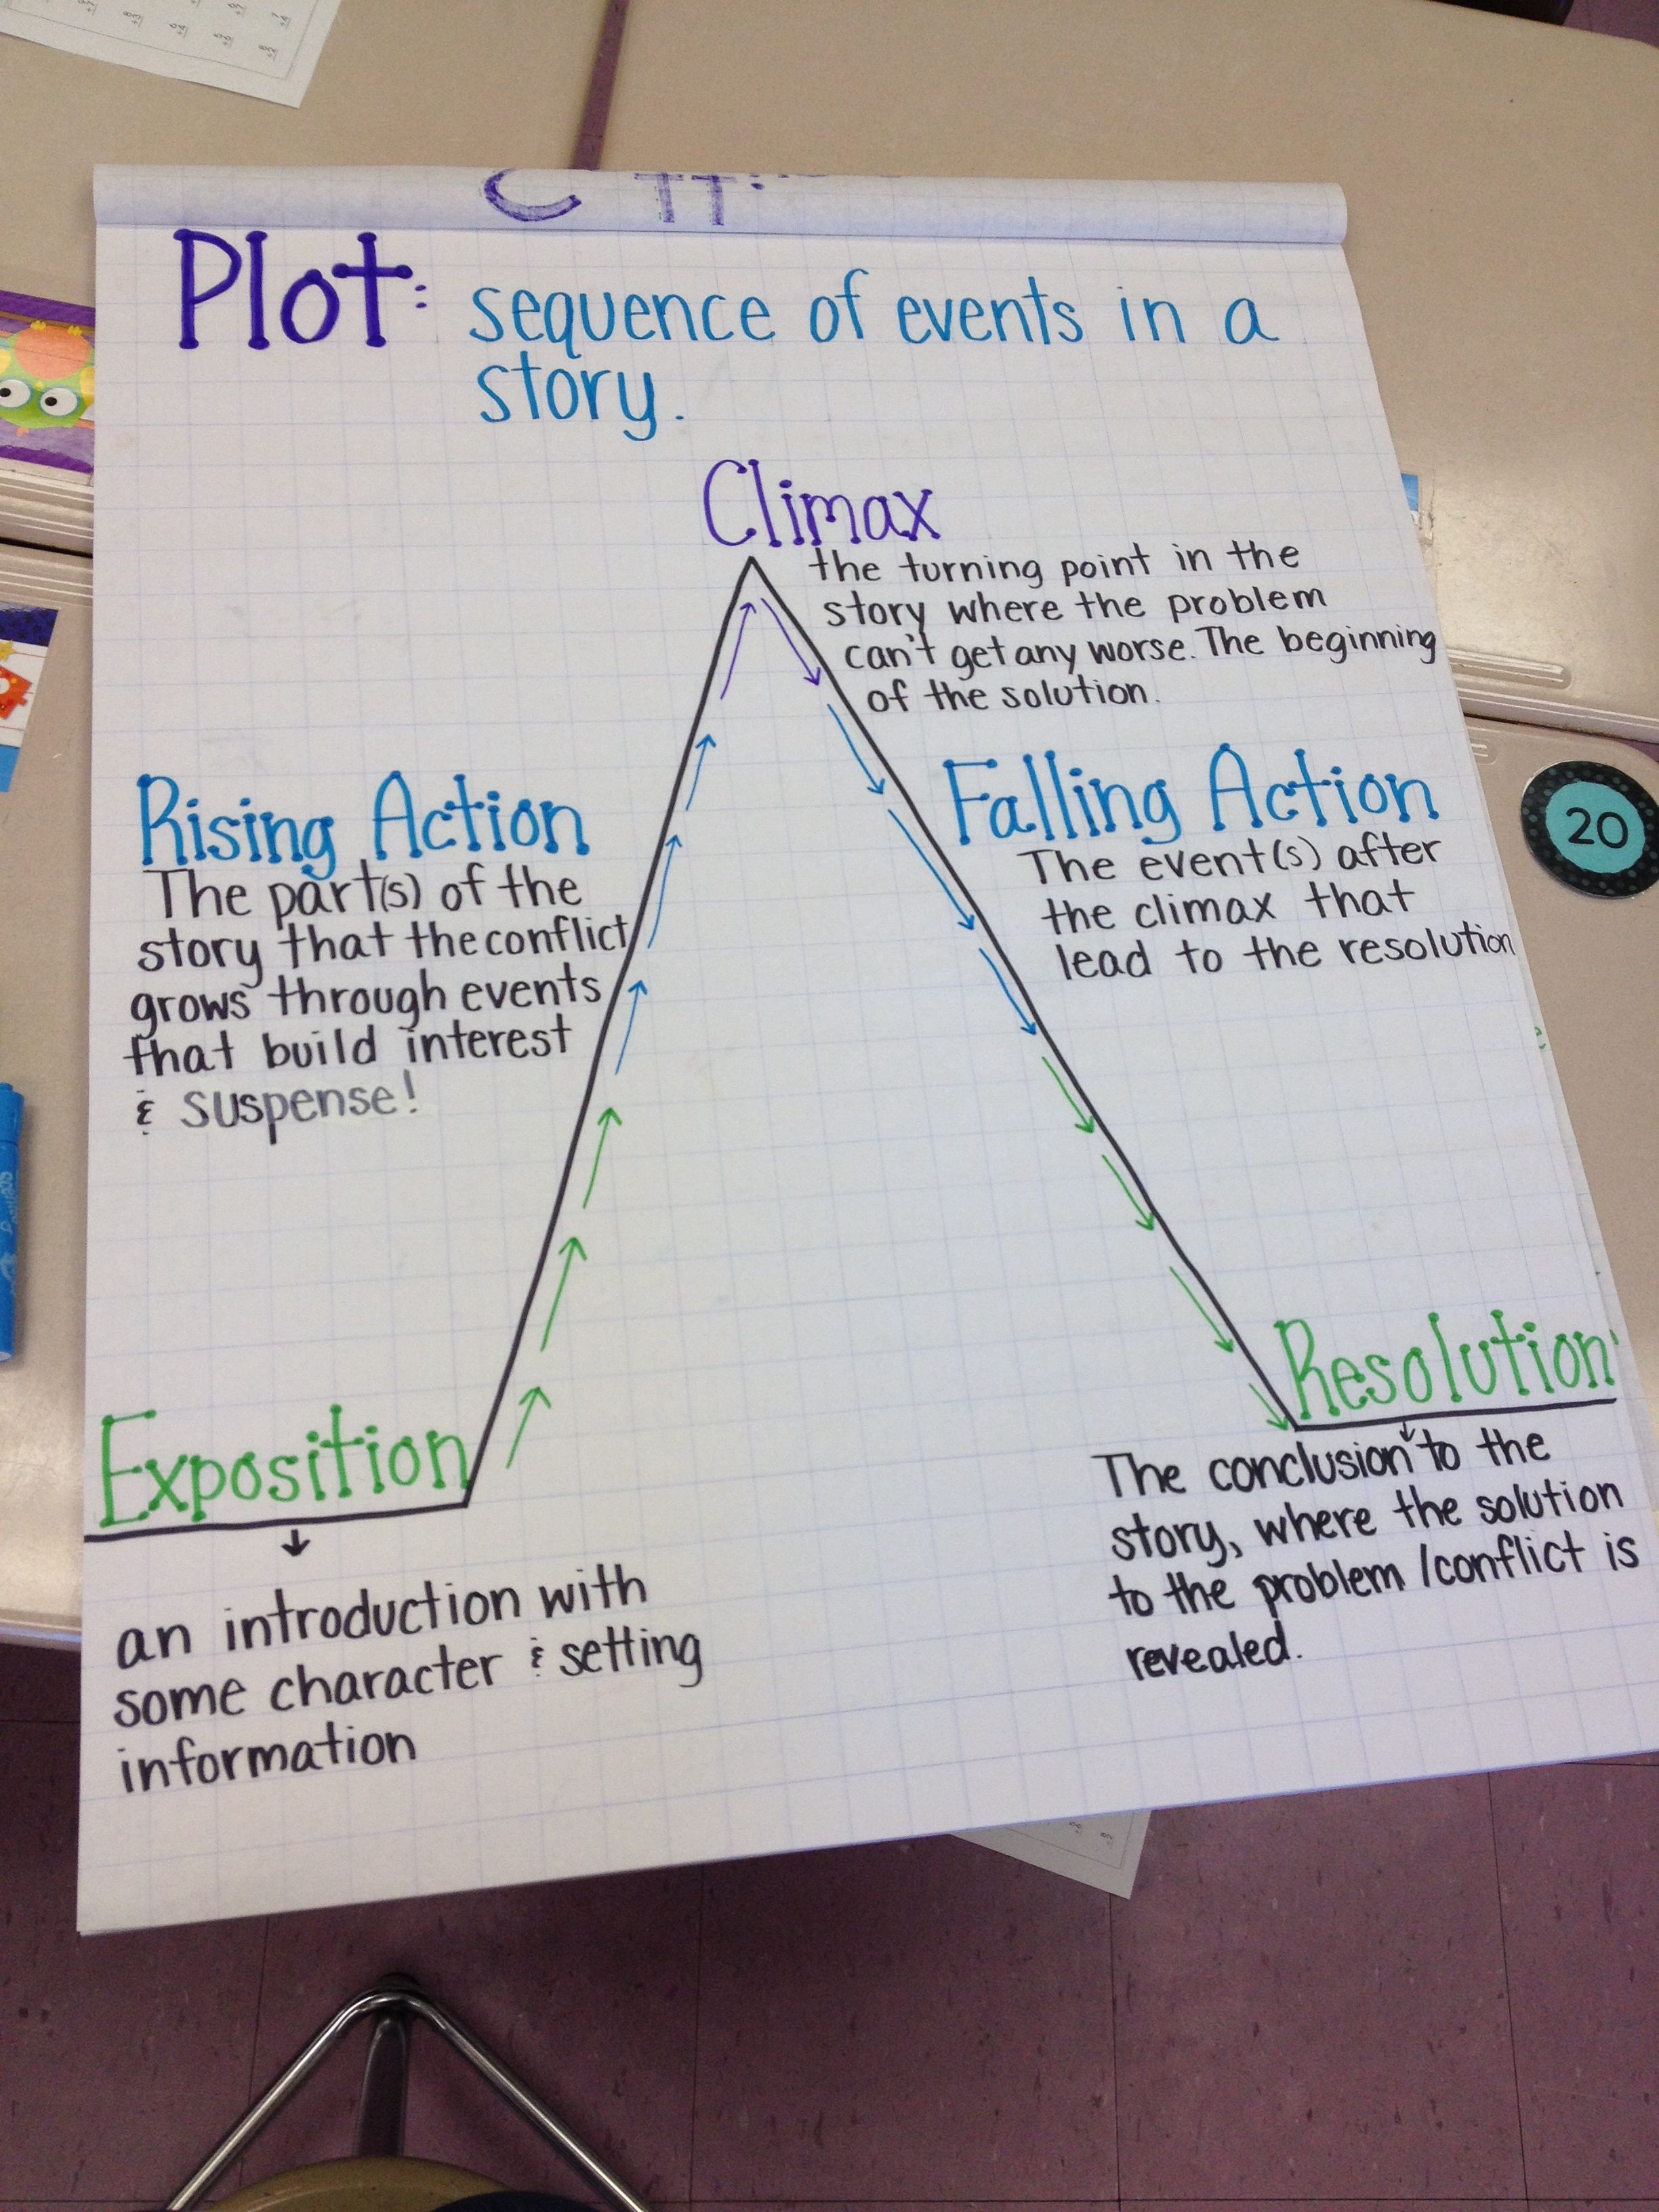 Plot: sequence of events in a
story.
Climax
the turning point in the
story where the problem
can't get any worse. The beginning
of the solution.
Rising Action
The part(s) of the
story that the conflict
grows through events
that build interest
& suspense!
Falling Action
The event(s) after
the climax that
lead to the resolution
20
Exposition
an introduction with
some character & setting
information
Resolution
The conclusion to the
story, where the solution
to the problem/conflict is
revealed.